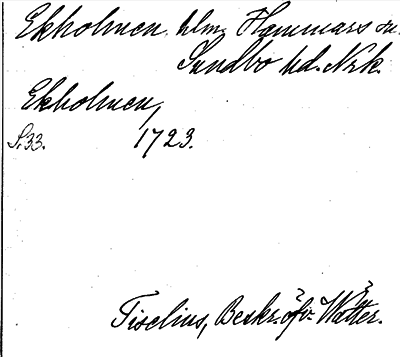 Ekholmen. hlm, Hammars sn.
Sundbo hd. Nrk.
Ekholmen,
S. 33. 1723.
Tiselius, Beskr. öfv. Wätter.